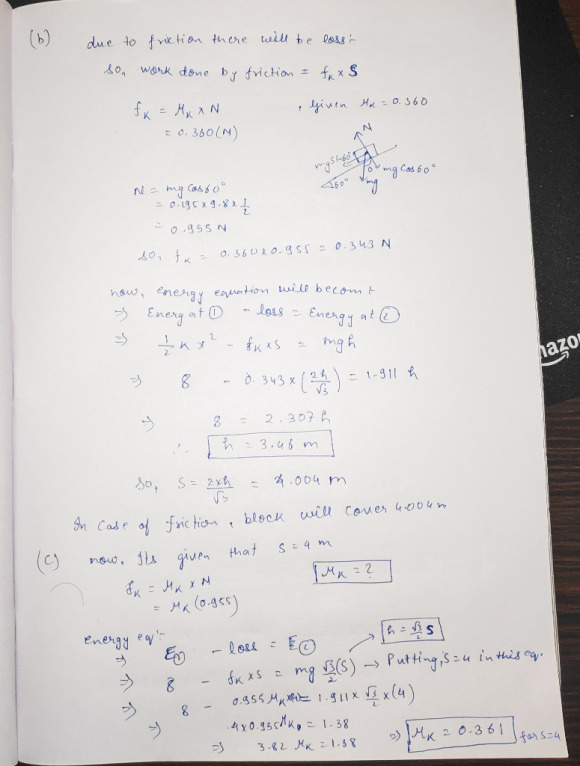 (b) due to friction there will be loss:-
So, work done by friction = fK × S
fK = μK × N , given μK = 0.360
= 0.360(N)
N
mg cos60°
60° mg
N = mg cos60°
= 0.195 × 9.8 × 1/2
= 0.955 N
So, fK = 0.360 × 0.955 = 0.343 N
now, energy equation will become
⇒ Energy at ① - loss = Energy at ②
⇒ 1/2 K x² - fK × S = mgh
⇒ 8 - 0.343 × (2h/√3) = 1.911 h
⇒ 8 = 2.307 h
∴ h = 3.46 m
So, S = 2×h/√3 = 4.004 m
In case of friction, block will cover 4.004 m
(c) now. Its given that S = 4 m
fK = μK × N μK = ?
= μK (0.955)
energy eqⁿ:- h = √3/2 S
⇒ E① - loss = E②
⇒ 8 - fK × S = mg √3/2 (S) → Putting, S = 4 in this eq.
⇒ 8 - 0.955 μK = 1.911 × √3/2 × (4)
⇒ 4 × 0.955 μK = 1.38
⇒ 3.82 μK = 1.38 ⇒ μK = 0.361 for S=4
hazo